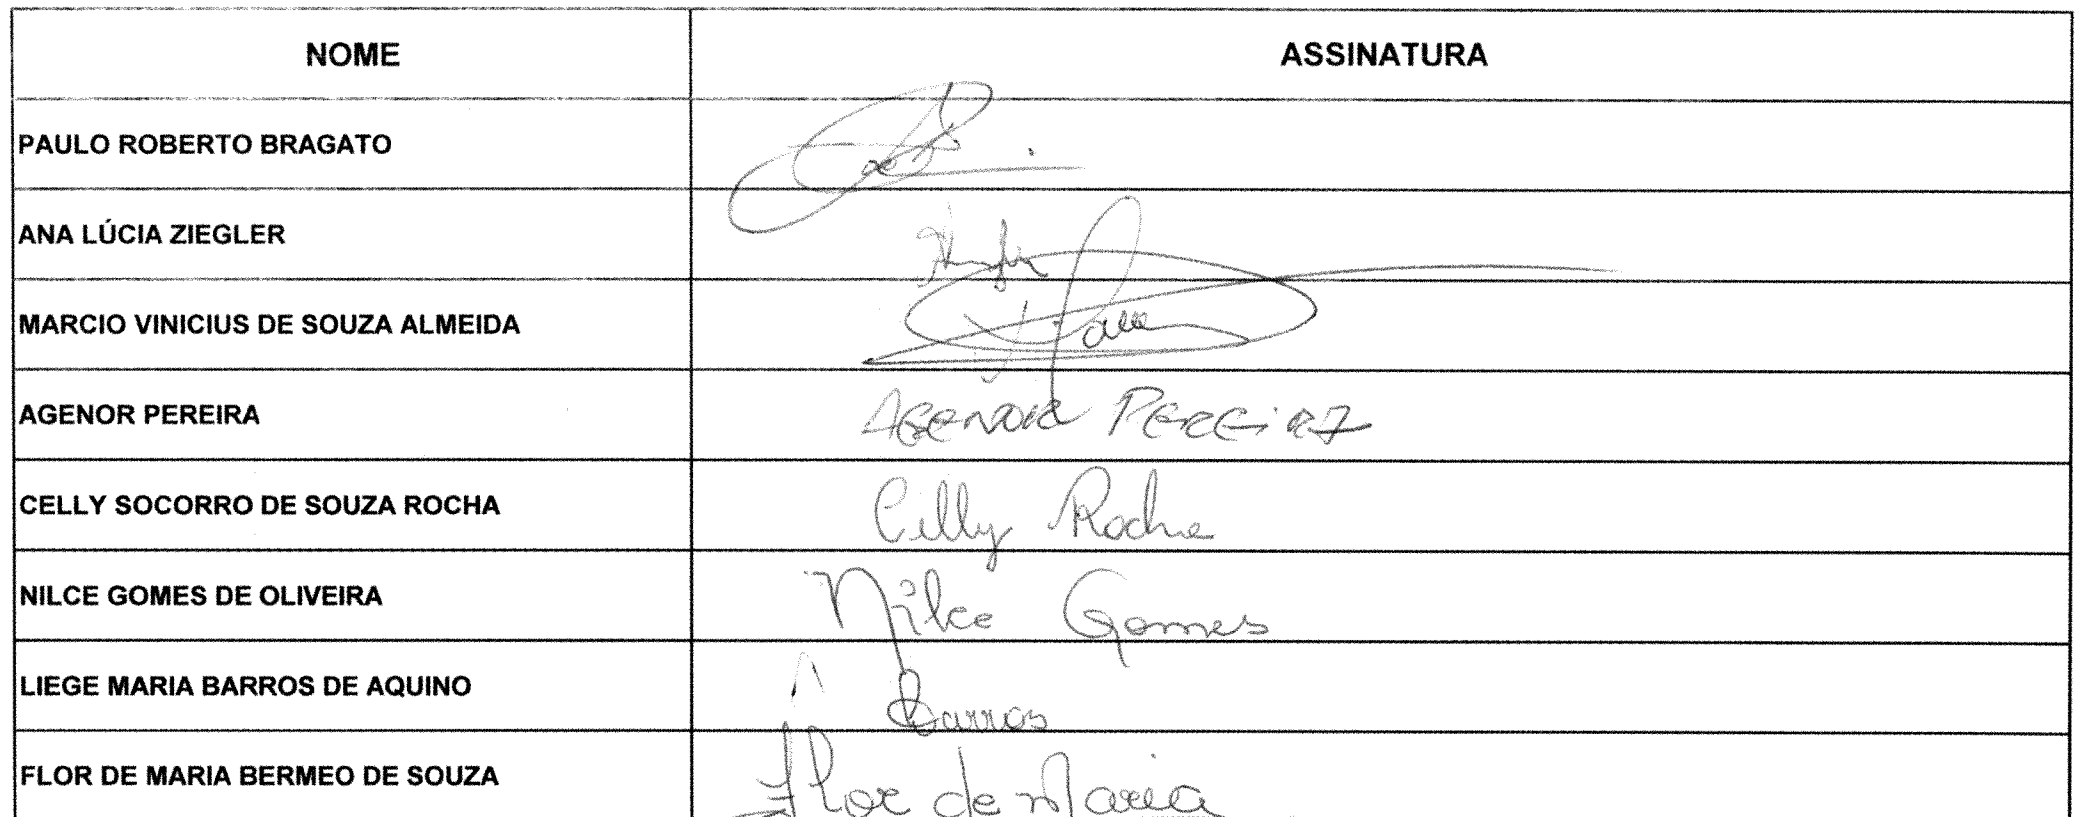 NOME ASSINATURA
PAULO ROBERTO BRAGATO
ANA LÚCIA ZIEGLER
MARCIO VINICIUS DE SOUZA ALMEIDA
AGENOR PEREIRA AGENOR PEREIRA
CELLY SOCORRO DE SOUZA ROCHA Celly Rocha
NILCE GOMES DE OLIVEIRA Nilce Gomes
LIEGE MARIA BARROS DE AQUINO Barros
FLOR DE MARIA BERMEO DE SOUZA Flor de Maria